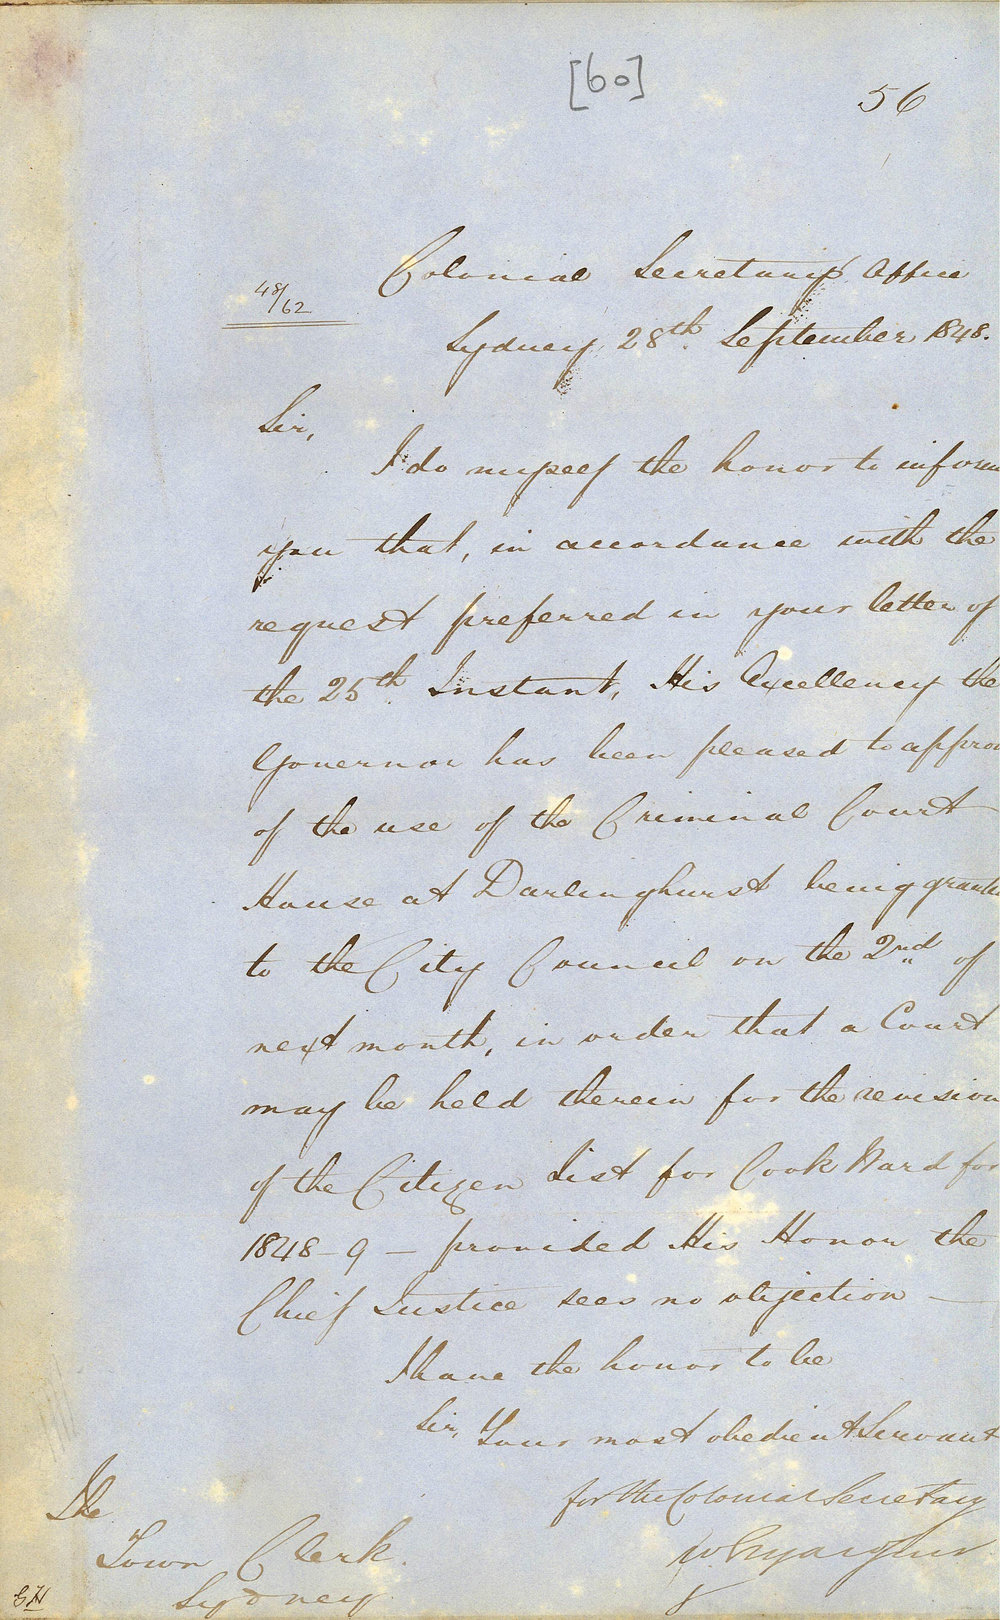 [60]
56
Colonial Secretary's Office
48/62
Sydney, 28th. September 1848.
Sir,
I do myself the honor to inform
you that, in accordance with the
request preferred in your letter of
the 25th Instant, His Excellency the
Governor has been pleased to approv
of the use of the Criminal Court
House at Darlinghurst being grante
to the City Council on the 2nd of
next month, in order that a Court
may be held therein for the revision
of the Citizen List for Cook Ward for
1848-9 — provided His Honor the
Chief Justice sees no objection —
I have the honor to be
Sir, Your most obedient Servant
for the Colonial Secretary
The
Town Clerk.
Sydney